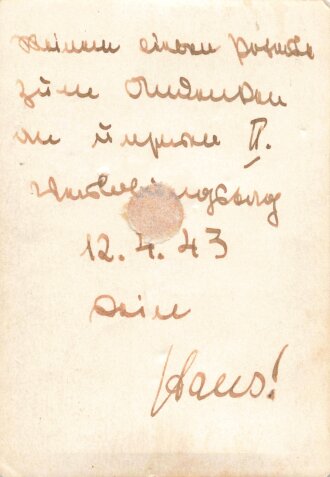 Meinem lieben
zum Andenken
an unseren II.
Verlobungstag
12.4.43
Dein
Hans!